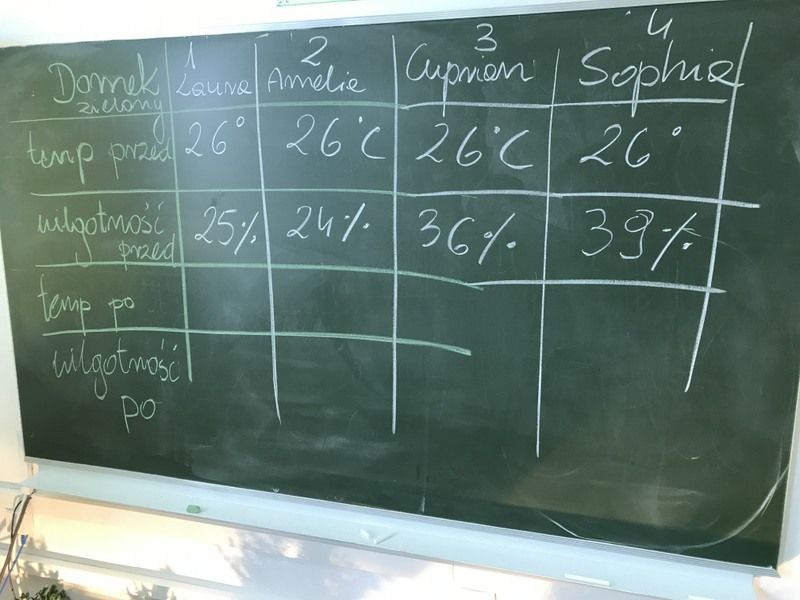 1 2 3 4
Domek Laura Amelie Cyprian Sophie
zielony
temp przed 26° 26°C 26°C 26°
wilgotność 25% 24% 36% 39%
przed
temp po
wilgotność
po